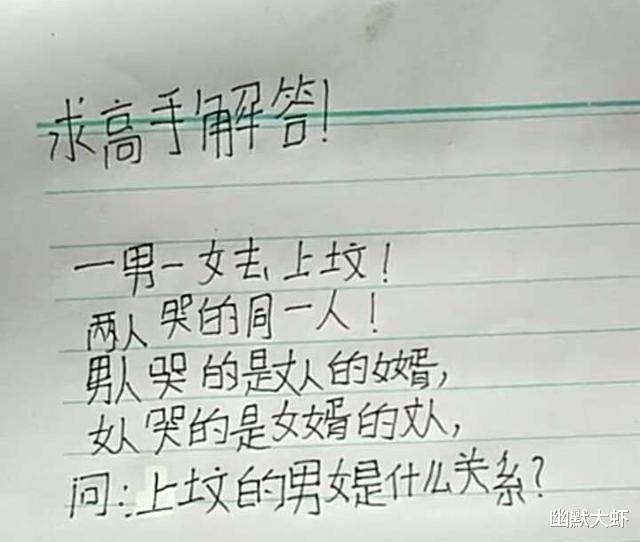 求高手解答!
一男一女去上坟!
两人哭的同一人!
男人哭的是丈人的女婿,
女人哭的是女婿的丈人,
问:上坟的男女是什么关系?
幽默大虾